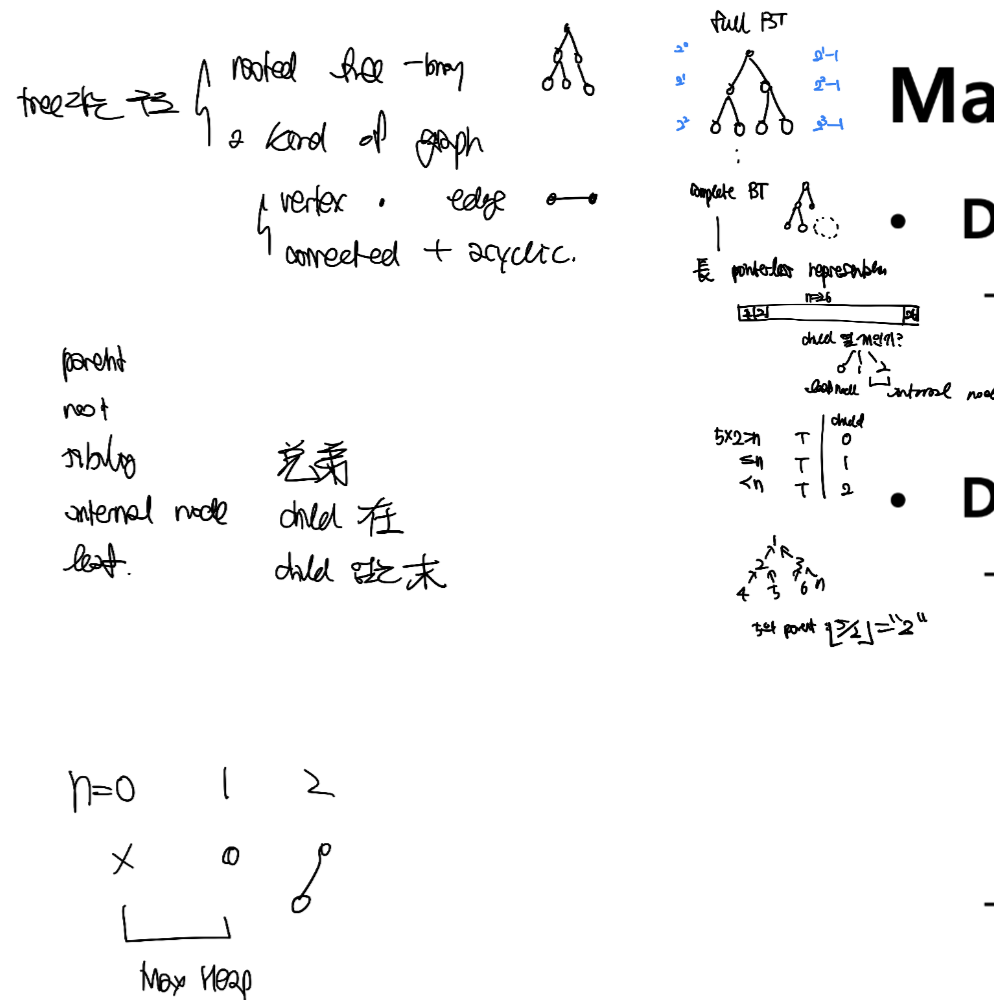 tree라는 구조
rooted tree - binary
a kind of graph
vertex edge
connected + acyclic.
parent
root
sibling 兄弟
internal node child 在
leaf. child 없는 末
n=0 1 2
x
Max Heap
full BT
2⁰ 2¹-1
2¹ 2²-1
2² 2³-1
complete BT
長 pointerless representation
n=26
1 2 26
child 몇개인가?
0 1 2
leaf node internal node
child
5×2>n T 0
=n T 1
<n T 2
1
2 3
4 5 6 n
5의 parent ⌊5/2⌋="2"
Ma
• D
-
• D
-
-